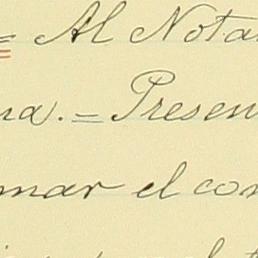 = Al Nota
na. = Presen
mar el con